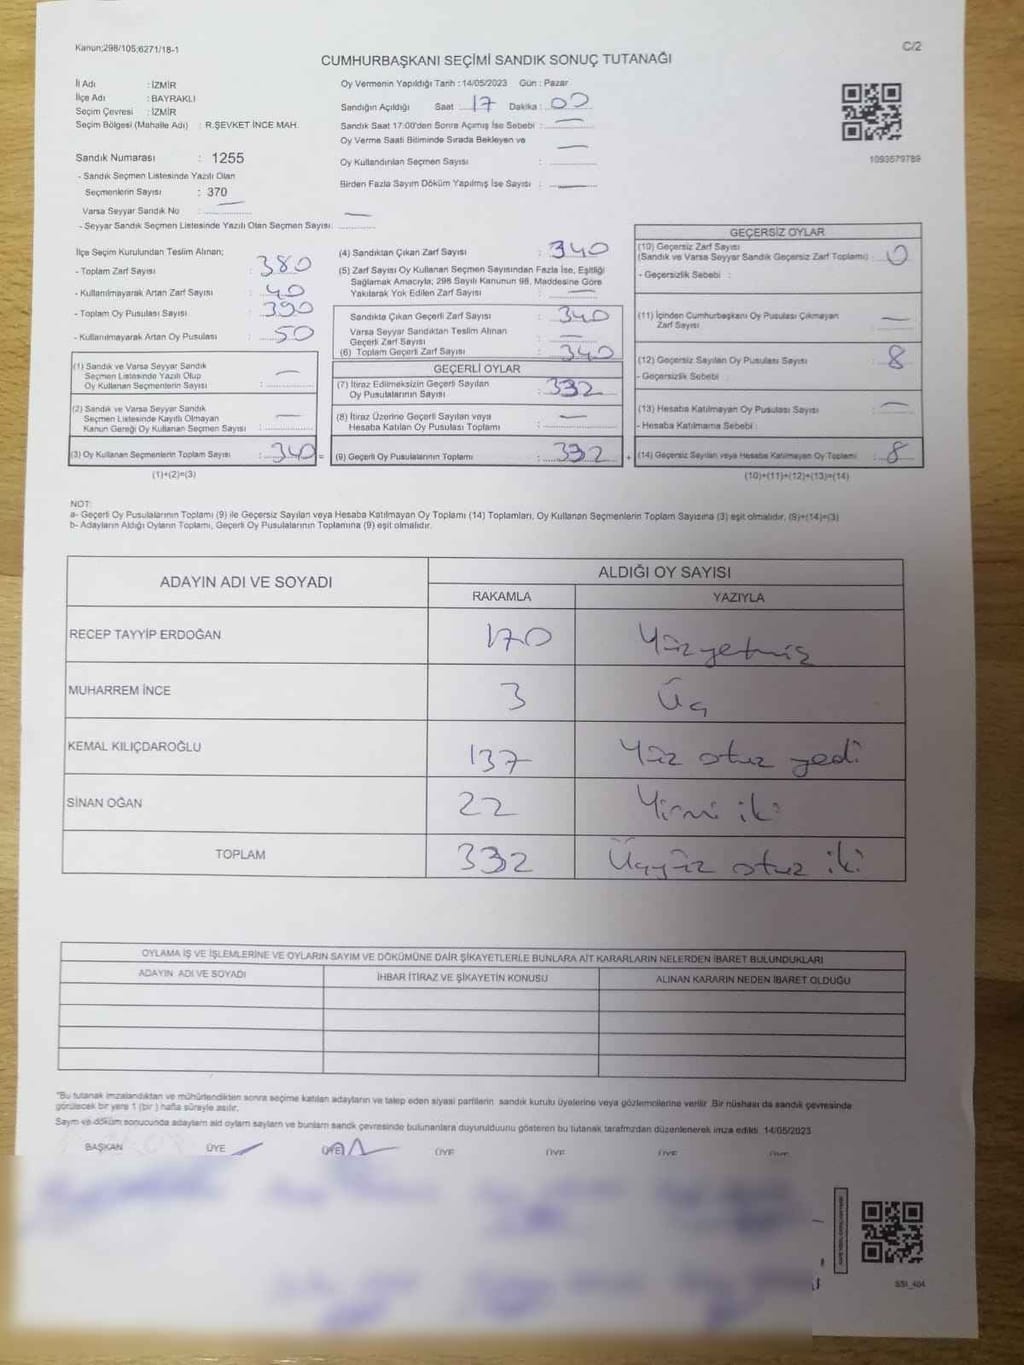 Kanun;298/105;6271/18-1
C/2
CUMHURBAŞKANI SEÇİMİ SANDIK SONUÇ TUTANAĞI
İl Adı : İZMİR
İlçe Adı : BAYRAKLI
Seçim Çevresi : İZMİR
Seçim Bölgesi (Mahalle Adı) : R.ŞEVKET İNCE MAH.
Sandık Numarası : 1255
- Sandık Seçmen Listesinde Yazılı Olan
Seçmenlerin Sayısı : 370
Varsa Seyyar Sandık No : —
- Seyyar Sandık Seçmen Listesinde Yazılı Olan Seçmen Sayısı: —
Oy Vermenin Yapıldığı Tarih : 14/05/2023 Gün : Pazar
Sandığın Açıldığı Saat : 17 Dakika : 00
Sandık Saat 17:00'den Sonra Açımış İse Sebebi : —
Oy Verme Saati Bitiminde Sırada Bekleyen ve
Oy Kullandırılan Seçmen Sayısı : —
Birden Fazla Sayım Döküm Yapılmış İse Sayısı : —
1093579789
İlçe Seçim Kurulundan Teslim Alınan;
- Toplam Zarf Sayısı : 380
- Kullanılmayarak Artan Zarf Sayısı : 40
- Toplam Oy Pusulası Sayısı : 390
- Kullanılmayarak Artan Oy Pusulası : 50
(1) Sandık ve Varsa Seyyar Sandık
Seçmen Listesinde Yazılı Olup
Oy Kullanan Seçmenlerin Sayısı : —
(2) Sandık ve Varsa Seyyar Sandık
Seçmen Listesinde Kayıtlı Olmayan
Kanun Gereği Oy Kullanan Seçmen Sayısı : —
(3) Oy Kullanan Seçmenlerin Toplam Sayısı : 340 =
(1)+(2)=(3)
(4) Sandıktan Çıkan Zarf Sayısı : 340
(5) Zarf Sayısı Oy Kullanan Seçmen Sayısından Fazla İse, Eşitliği
Sağlamak Amacıyla; 298 Sayılı Kanunun 98. Maddesine Göre
Yakılarak Yok Edilen Zarf Sayısı : —
Sandıkta Çıkan Geçerli Zarf Sayısı : 340
Varsa Seyyar Sandıktan Teslim Alınan
Geçerli Zarf Sayısı : —
(6) Toplam Geçerli Zarf Sayısı : 340
GEÇERLİ OYLAR
(7) İtiraz Edilmeksizin Geçerli Sayılan
Oy Pusulalarının Sayısı : 332
(8) İtiraz Üzerine Geçerli Sayılan veya
Hesaba Katılan Oy Pusulası Toplamı : —
(9) Geçerli Oy Pusulalarının Toplamı : 332 +
GEÇERSİZ OYLAR
(10) Geçersiz Zarf Sayısı
(Sandık ve Varsa Seyyar Sandık Geçersiz Zarf Toplamı) : 0
- Geçersizlik Sebebi :
(11) İçinden Cumhurbaşkanı Oy Pusulası Çıkmayan
Zarf Sayısı : —
(12) Geçersiz Sayılan Oy Pusulası Sayısı : 8
- Geçersizlik Sebebi :
(13) Hesaba Katılmayan Oy Pusulası Sayısı : —
- Hesaba Katılmama Sebebi :
(14) Geçersiz Sayılan veya Hesaba Katılmayan Oy Toplamı : 8
(10)+(11)+(12)+(13)=(14)
NOT:
a- Geçerli Oy Pusulalarının Toplamı (9) ile Geçersiz Sayılan veya Hesaba Katılmayan Oy Toplamı (14) Toplamları, Oy Kullanan Seçmenlerin Toplam Sayısına (3) eşit olmalıdır. (9)+(14)=(3)
b- Adayların Aldığı Oyların Toplamı, Geçerli Oy Pusulalarının Toplamına (9) eşit olmalıdır.
ADAYIN ADI VE SOYADI ALDIĞI OY SAYISI
RAKAMLA YAZIYLA
RECEP TAYYİP ERDOĞAN 170 Yüzyetmiş
MUHARREM İNCE 3 Üç
KEMAL KILIÇDAROĞLU 137 Yüz otuz yedi
SİNAN OĞAN 22 Yirmi iki
TOPLAM 332 Üçyüz otuz iki
OYLAMA İŞ VE İŞLEMLERİNE VE OYLARIN SAYIM VE DÖKÜMÜNE DAİR ŞİKAYETLERLE BUNLARA AİT KARARLARIN NELERDEN İBARET BULUNDUKLARI
ADAYIN ADI VE SOYADI İHBAR İTİRAZ VE ŞİKAYETİN KONUSU ALINAN KARARIN NEDEN İBARET OLDUĞU
"Bu tutanak imzalandıktan ve mühürlendikten sonra seçime katılan adayların ve talep eden siyasi partilerin sandık kurulu üyelerine veya gözlemcilerine verilir. Bir nüshası da sandık çevresinde
görülecek bir yere 1 (bir ) hafta süreyle asılır.
Sayım ve döküm sonucunda adayların aldığı oyların sayıları ve bunların sandık çevresinde bulunanlara duyurulduğunu gösteren bu tutanak tarafımızdan düzenlenerek imza edildi. 14/05/2023
BAŞKAN ÜYE ÜYE ÜYE ÜYE ÜYE ÜYE
SSI_404